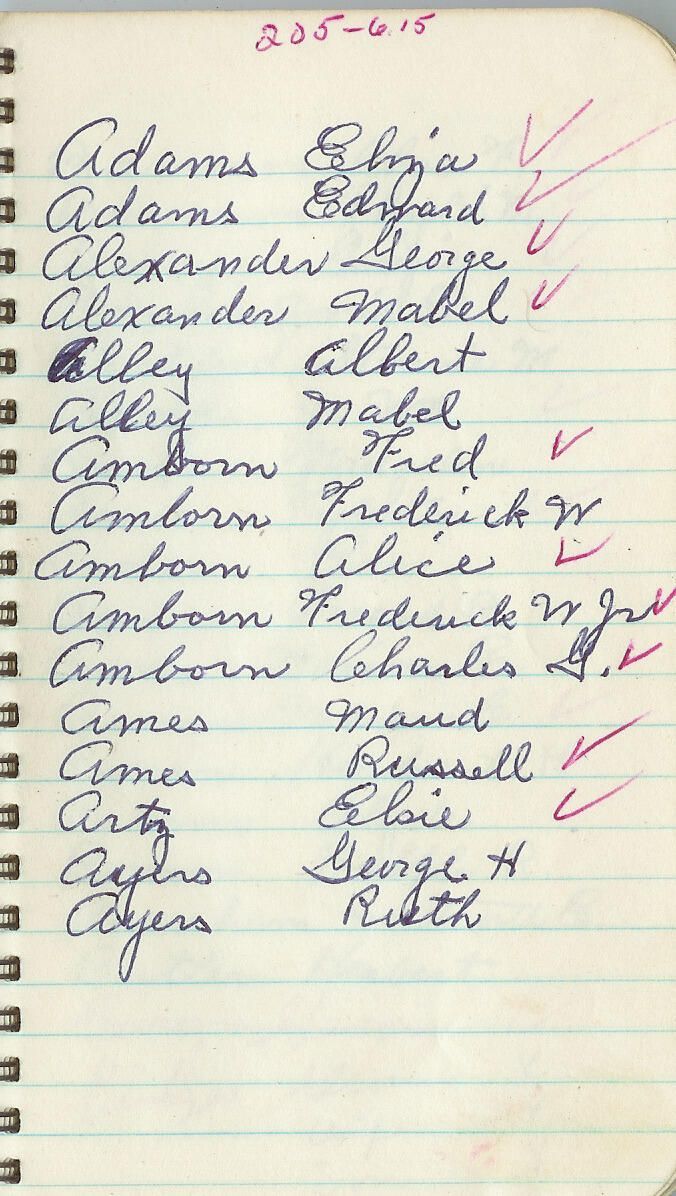 205-615
Adams Eliza ✓
Adams Edward ✓
Alexander George ✓
Alexander Mabel ✓
Alley Albert
Alley Mabel
Amborn Fred ✓
Amborn Frederick W
Amborn Alice ✓
Amborn Frederick W Jr ✓
Amborn Charles G. ✓
Ames Maud
Ames Russell ✓
Artz Elsie ✓
Ayers George H
Ayers Ruth